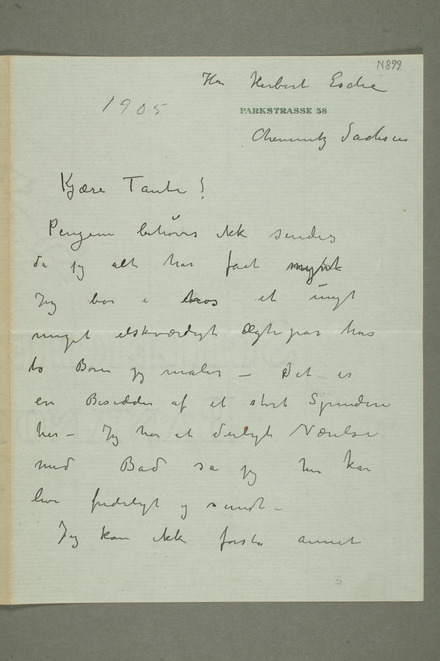 N 899
Herr Herbert Esche
1905
PARKSTRASSE 58
Chemnitz Sachsen
Kjære Tante!
Pengene behøves ikk sendes
da jeg alt har faat
Jeg bor i et ungt
meget elskværdigt Ægtepar hvis
to Børn jeg maler – Det er
en Besidder af et stort Spinderi
her – Jeg har et deiligt Værelse
med Bad så jeg her kan
leve fredeligt og sundt –
Jeg kan ikke forstå annet